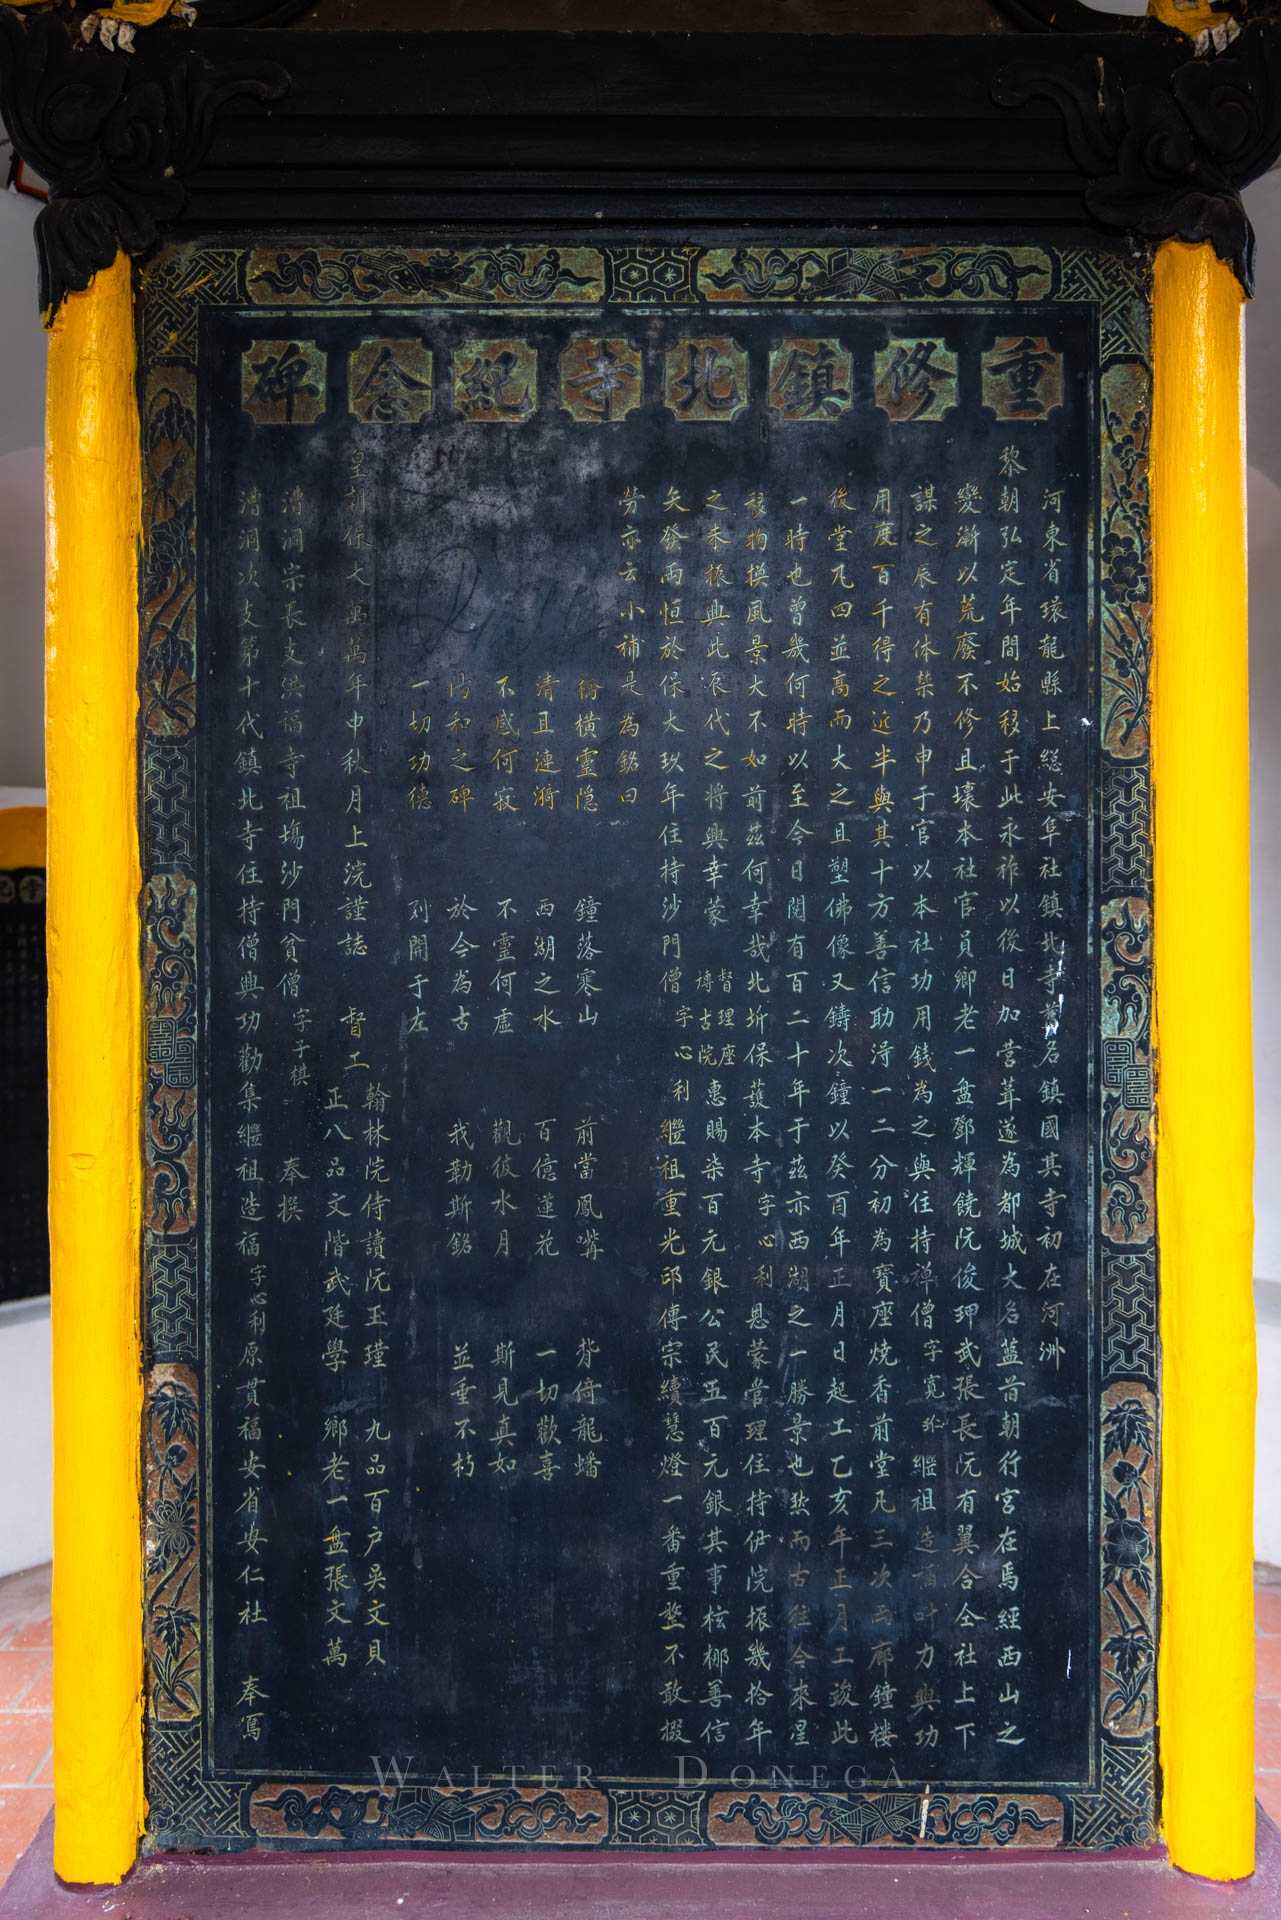 重修鎮北寺紀念碑
河東省環龍縣上総安阜社鎮北寺前名鎮國其寺初在河洲
黎朝弘定年間始移于此永祚以後日加营葺遂為都城大名藍前朝行宮在焉經西山之
變漸以荒廢不修且壞本社官員鄉老一盘鄧輝饒阮俊玾武張長阮有翼合仝社上下
謀之辰有体禁乃申于官以本社功用錢為之與住持禅僧字寬繼祖造福叶力興功
用度百千得之近半與其十方善信助淂一二分初為寶座燒香前堂凡三次两廊鐘楼
後堂凡四並高而大之且塑佛像又鑄次鐘以癸酉年正月日起工乙亥年正月工竣此
一時也曾幾何時以至今日閱有百二十年于茲亦西湖之一勝景也然而古往今來星
移物换風景大不如前茲何幸哉北圻保護本寺字心利恩蒙管理住持伊院振幾拾年
之未振興此辰代之將興幸蒙督理座愽古院惠賜柒百元銀公民五百元銀其事核梛善信
矣發雨恒於保大玖年住持沙門僧字心利繼祖重光邱傳宗續慧燈一番重整不敢掇
勞亦云小補是為銘曰
份橫靈隐 鐘落寒山 前當鳳嘴 背倚龍蟠
清且連漪 西湖之水 百億蓮花 一切歡喜
不感何寂 不靈何虛 觀彼水月 斯見真如
陽和之碑 於今為古 我勒斯銘 並垂不朽
一切功德 列開于左
皇朝保大萬萬年中秋月上浣謹誌 督工 翰林院侍讀阮玉瑾 九品百户吳文貝
正八品文階武廷學 鄉老一盘張文萬
漕洞宗長支洪福寺祖塲沙門貧僧字子棋 奉撰
漕洞次支第十代鎮北寺住持僧興功勸集繼祖造福字心利原貫福安省安仁社 奉寫
WALTER DONEGA